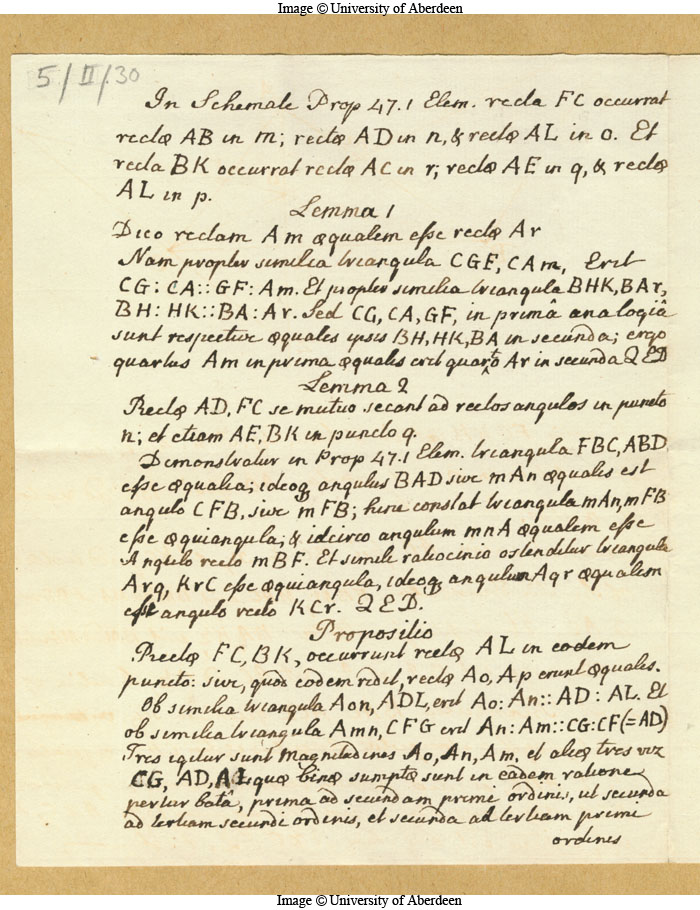 Image © University of Aberdeen
5/II/30
In Schemate Prop 47.1 Elem. recta FC occurrat
rectæ AB in m; rectæ AD in n, & rectæ AL in o. Et
recta BK occurrat rectæ AC in r; rectæ AE in q, & rectæ
AL in p.
Lemma 1
Dico rectam Am æqualem esse rectæ Ar
Nam propter similia triangula CGF, CAm, Erit
CG : CA :: GF : Am. Et propter similia triangula BHK, BAr,
BH : HK :: BA : Ar. Sed CG, CA, GF, in primâ analogiâ
sunt respective æquales ipsis BH, HK, BA in secunda; ergo
quartus Am in prima æqualis erit quarto Ar in secunda Q E D
Lemma 2
Rectæ AD, FC se mutuo secant ad rectos angulos in puncto
n; et etiam AE, BK in puncto q.
Demonstratur in Prop 47.1 Elem. triangula FBC, ABD
esse æqualia; ideoq angulus BAD sive mAn æqualis est
angulo CFB, sive mFB; hinc constat triangula mAn, mFB
esse æquiangula; & idcirco angulum mnA æqualem esse
Angulo recto mBF. Et simili ratiocinio ostenditur triangula
Arq, KrC esse æquiangula, ideoq angulum Aqr æqualem
esse angulo recto KCr. Q E D.
Propositio
Rectæ FC, BK, occurrunt rectæ AL in eodem
puncto: sive, quod eodem redit, rectæ Ao, Ap erunt æquales.
Ob similia triangula Aon, ADL, erit Ao : An :: AD : AL. Et
ob similia triangula Amn, CFG erit An : Am :: CG : CF (= AD)
Tres igitur sunt magnitudines Ao, An, Am, et aliæ tres viz
CG, AD, AL quæ binæ sumptæ sunt in eâdem ratione
perturbatâ, prima ad secundam primi ordinis, ut secunda
ad tertiam secundi ordinis, et secunda ad tertiam primi
ordinis
Image © University of Aberdeen